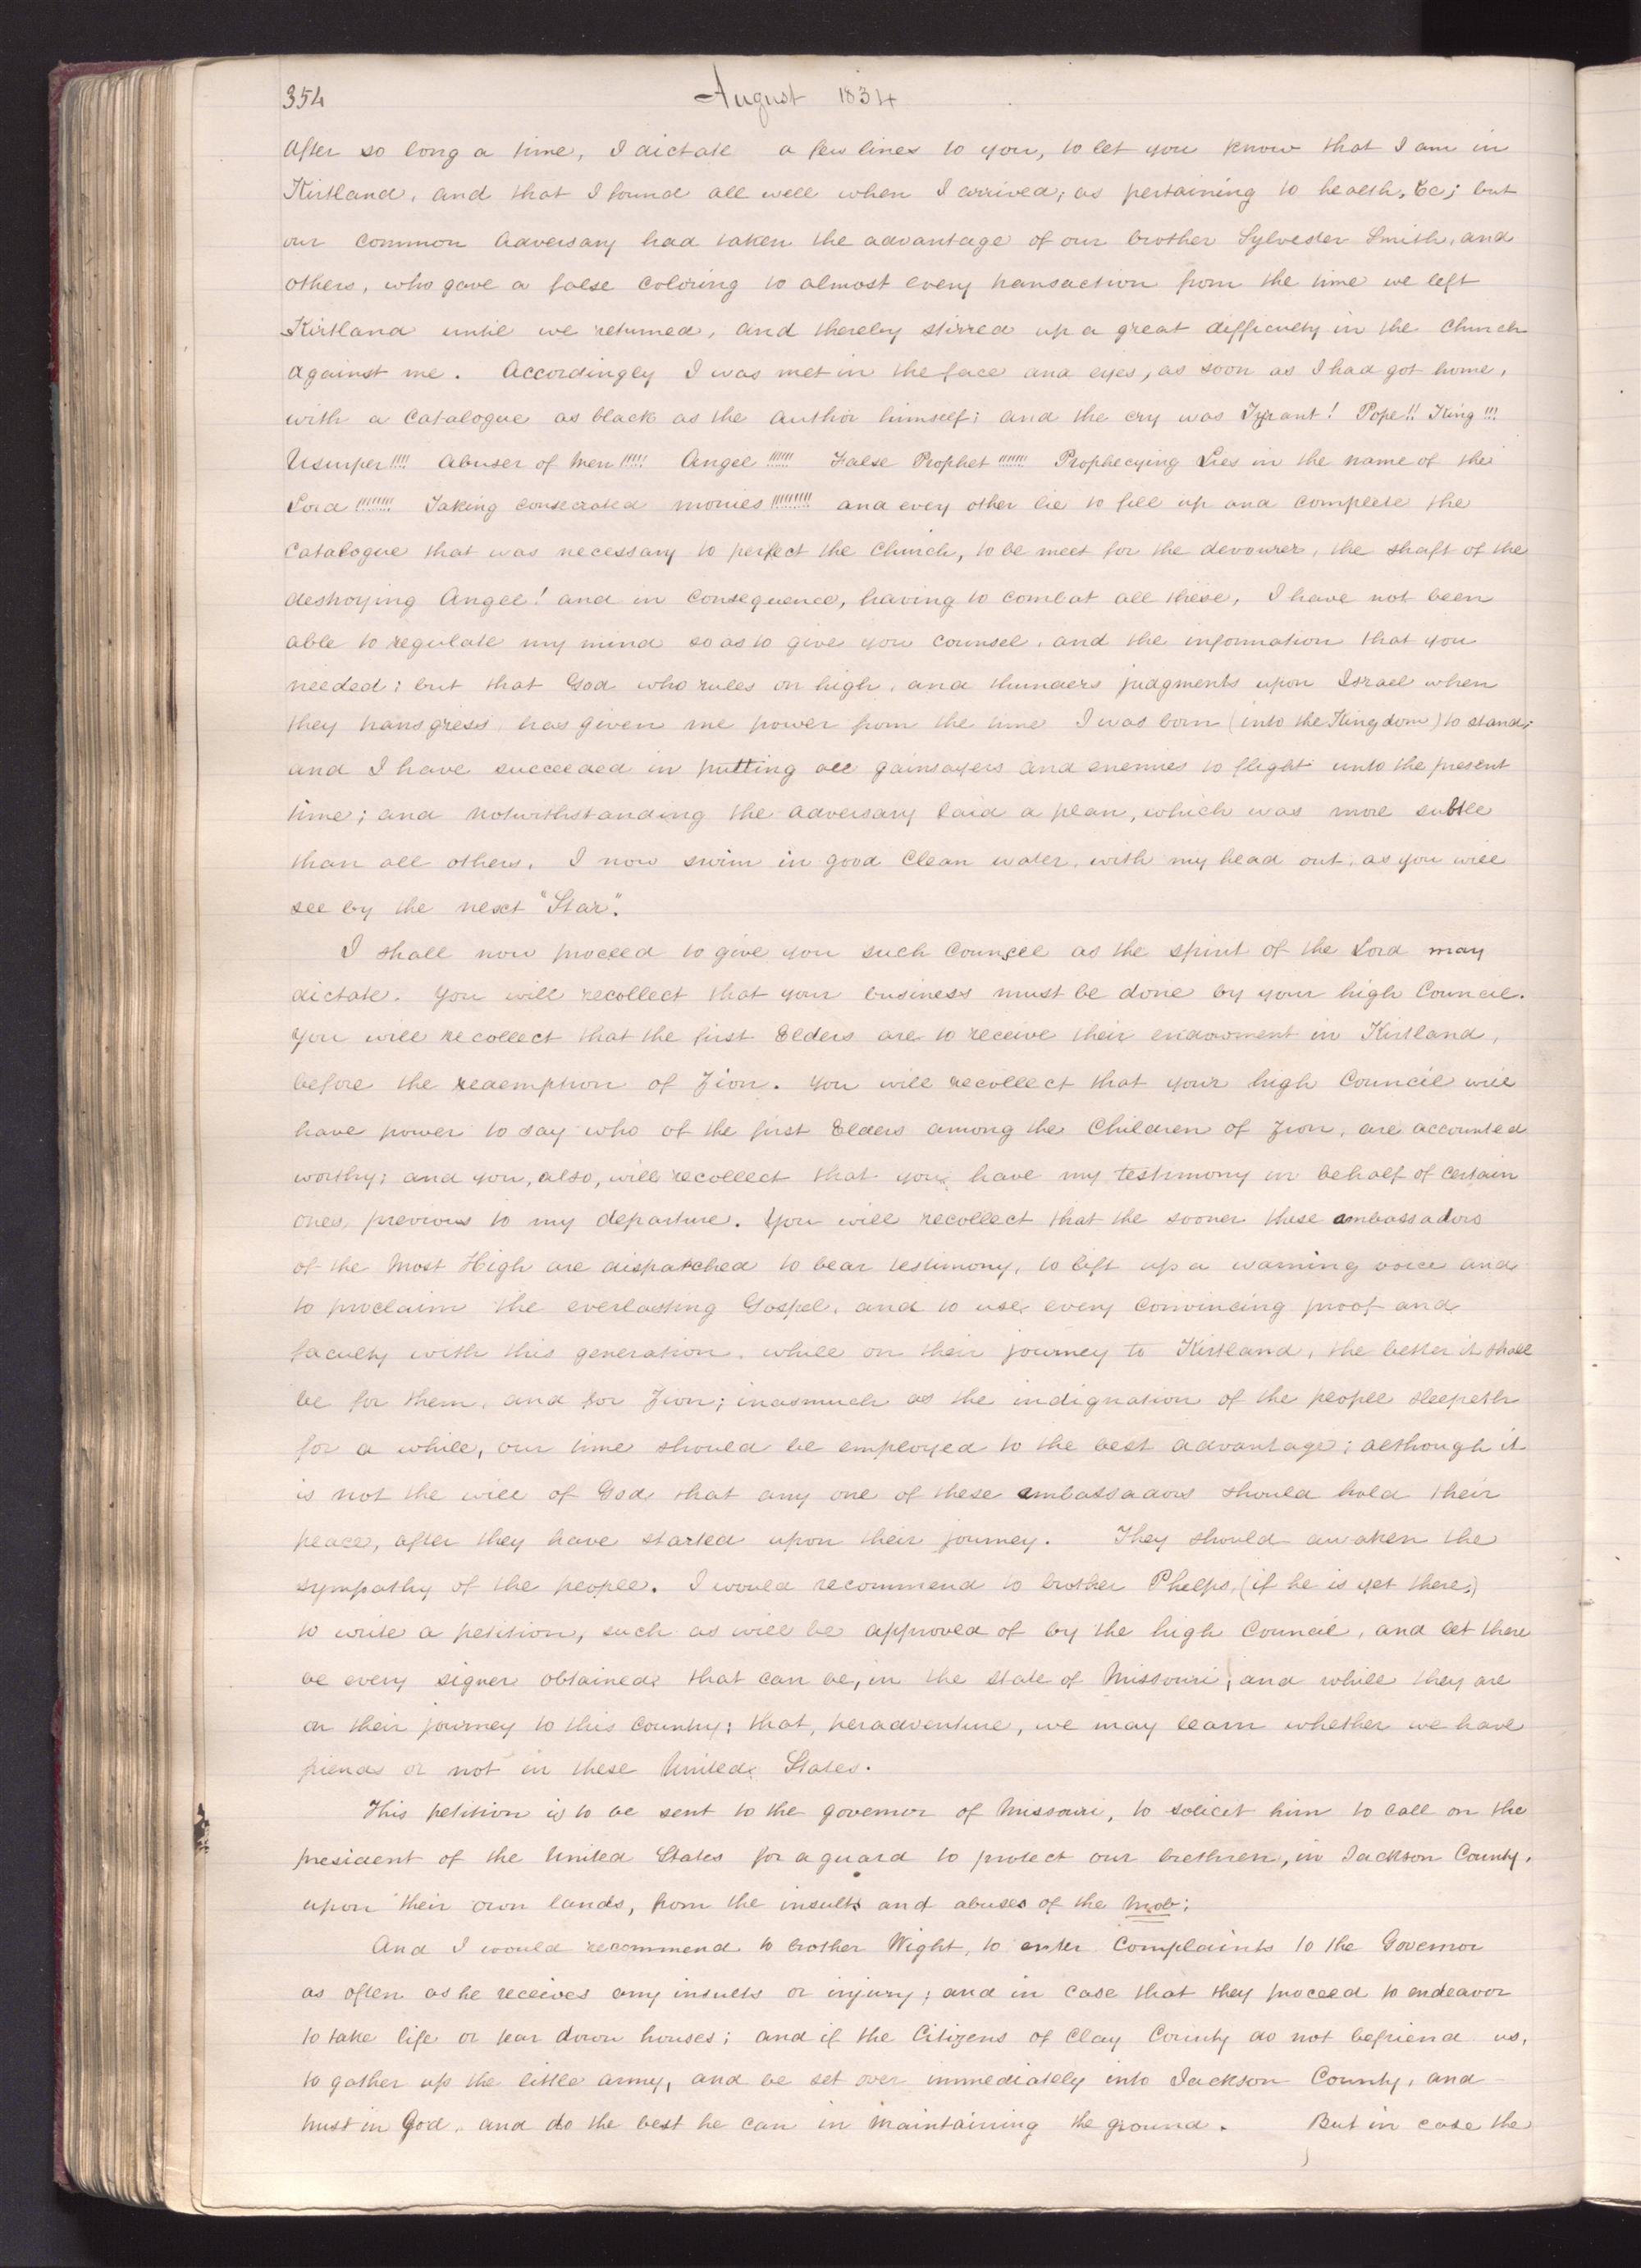 354
August 1834
After so long a time, I dictate a few lines to you, to let you know that I am in
Kirtland, and that I found all well when I arrived; as pertaining to health, &c; but
our common adversary had taken the advantage of our brother Sylvester Smith, and
others, who gave a false coloring to almost every transaction from the time we left
Kirtland until we returned, and thereby stirred up a great difficulty in the Church
against me. Accordingly I was met in the face and eyes, as soon as I had got home,
with a catalogue as black as the author himself; and the cry was Tyrant! Pope!! King!!!
Usurper!!!! Abuser of men!!!!! Angel!!!!!! False Prophet!!!!!!! Prophecying Lies in the name of the
Lord!!!!!!!! Taking consecrated monies!!!!!!!!! and every other lie to fill up and complete the
catalogue that was necessary to perfect the Church, to be meet for the devourer, the shaft of the
destroying Angel! and in consequence, having to combat all these, I have not been
able to regulate my mind so as to give you counsel, and the information that you
needed; but that God who rules on high, and thunders judgments upon Israel when
they transgress, has given me power from the time I was born (into the Kingdom) to stand;
and I have succeeded in putting all gainsayers and enemies to flight unto the present
time; and notwithstanding the adversary laid a plan, which was more subtle
than all others, I now swim in good clean water, with my head out, as you will
see by the next "Star".
I shall now proceed to give you such councel as the spirit of the Lord may
dictate. You will recollect that your business must be done by your high Council.
You will recollect that the first Elders are to receive their endowment in Kirtland,
before the redemption of Zion. You will recollect that your high Council will
have power to say who of the first Elders among the Children of Zion, are accounted
worthy; and you, also, will recollect that you have my testimony in behalf of certain
ones, previous to my departure. You will recollect that the sooner these ambassadors
of the Most High are dispatched to bear testimony, to lift up a warning voice and
to proclaim the everlasting Gospel, and to use every convincing proof and
faculty with this generation, while on their journey to Kirtland, the better it shall
be for them, and for Zion; inasmuch as the indignation of the people sleepeth
for a while, our time should be employed to the best advantage; although it
is not the will of God that any one of these ambassadors should hold their
peace, after they have started upon their journey. They should awaken the
sympathy of the people. I would recommend to brother Phelps, (if he is yet there,)
to write a petition, such as will be approved of by the high Council, and let there
be every signer obtained that can be, in the state of Missouri, and while they are
on their journey to this country; that, peradventure, we may learn whether we have
friends or not in these United States.
This petition is to be sent to the governor of Missouri, to solicit him to call on the
president of the United States for a guard to protect our brethren, in Jackson County,
upon their own lands, from the insults and abuses of the mob;
And I would recommend to brother Wight, to enter complaints to the Governor
as often as he receives any insults or injury; and in case that they proceed to endeavor
to take life or tear down houses; and if the Citizens of Clay County do not befriend us,
to gather up the little army, and be set over immediately into Jackson County, and
trust in God, and do the best he can in maintaining the ground. But in case the